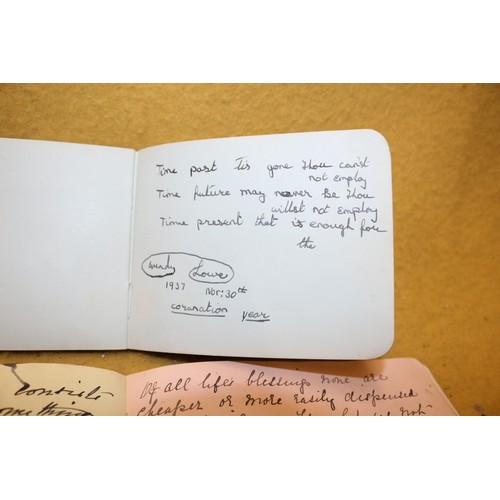 Time past tis gone thou canst
not employ
Time future may never be thou
willst not employ
Time present that is enough for
the
Wendy Lowe
1937 Nbr: 30th
coranation year
consists
something
Of all life's blessings none are
cheaper or more easily dispensed